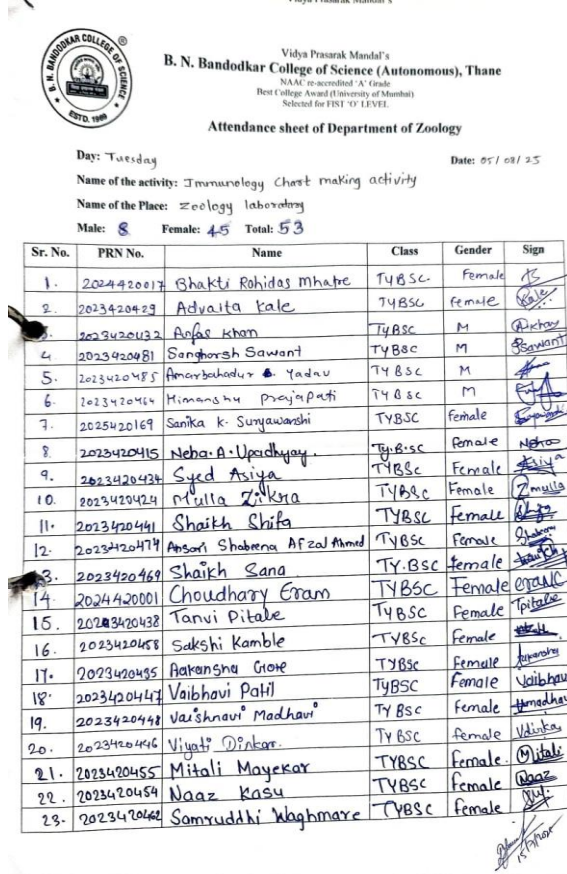 B. N. BANDODKAR COLLEGE OF SCIENCE
ESTD. 1969
Vidya Prasarak Mandal's
B. N. Bandodkar College of Science (Autonomous), Thane
NAAC re-accredited 'A' Grade
Best College Award (University of Mumbai)
Selected for FIST 'O' LEVEL
Attendance sheet of Department of Zoology
Day: Tuesday Date: 05/08/25
Name of the activity: Immunology Chart making activity
Name of the Place: Zoology laboratory
Male: 8 Female: 45 Total: 53
Sr. No. PRN No. Name Class Gender Sign
1. 2024420017 Bhakti Rohidas Mhatre TYBSC. Female
2. 2023420429 Advaita Kale TYBSC female Kale
3. 2023420432 Anfas Khan TYBSC M
4 2023420481 Sangharsh Sawant TYBSC M Sawant
5. 2023420485 Amarbahadur Yadav TYBSC M
6. 2023420464 Himanshu Prajapati TYBSC M
7. 2025420169 Sanika K. Suryawanshi TYBSC female
8. 2023420415 Neha.A.Upadhyay. Ty.B.sc Female Neha
9. 2023420434 Syed Asiya TYBSc Female Asiya
10. 2023420424 Mulla Zikra TYBSc Female Zmulla
11. 2023420441 Shaikh Shifa TYBSC Female
12. 2023420474 Ansari Shabeena Afzal Ahmed TYBSC Female
13. 2023420469 Shaikh Sana TY.BSC female
14. 2024420001 Choudhary Eram TYBSC Female
15. 2023420438 Tanvi Pitale TYBSC Female Tpitale
16. 2023420458 Sakshi Kamble TYBSC Female
17. 2023420435 Aakansha Gore TYBSC Female
18. 2023420447 Vaibhavi Patil TyBSC Female Vaibhav
19. 2023420448 Vaishnavi Madhavi TYBSC Female
20. 2023420446 Viyati Dinkar. TYBSC female
21. 2023420455 Mitali Mayekar TYBSC Female. Mitali
22. 2023420454 Naaz Kasu TYBSC Female Naaz
23. 2023420462 Samruddhi Waghmare TYBSC Female